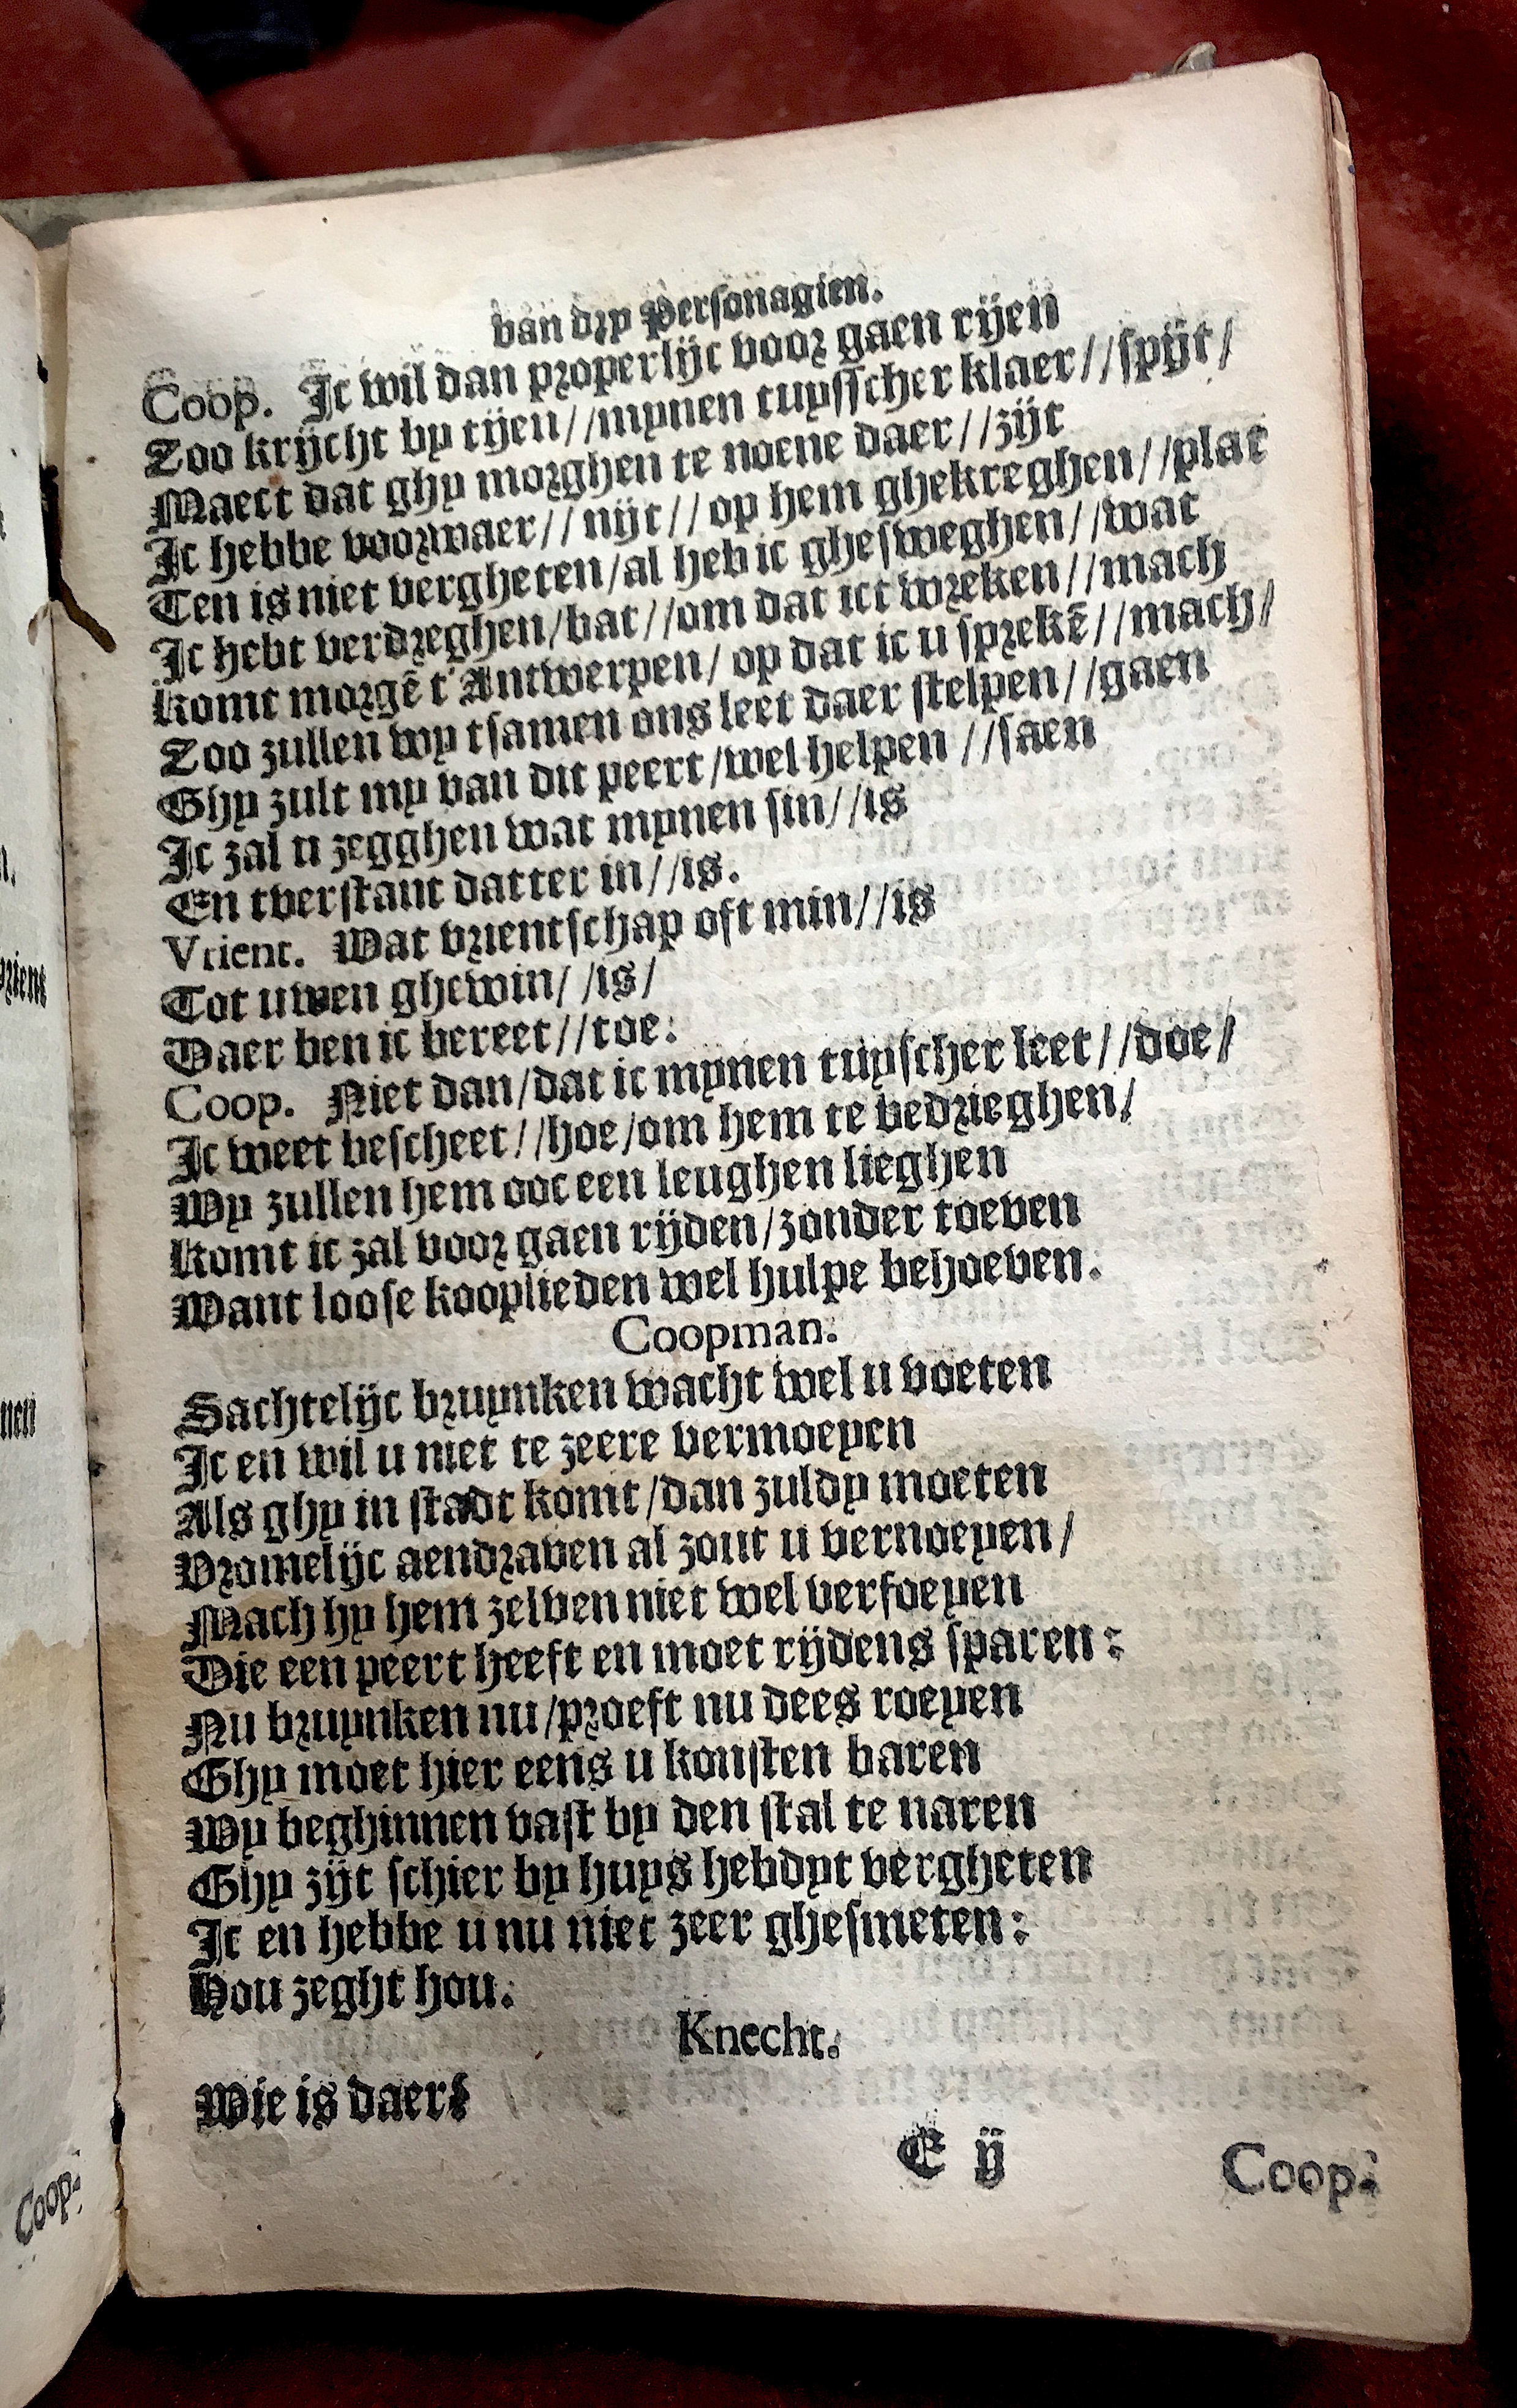 van dry Personagien.
Coop. Ic wil dan properlijc voor gaen rijen
Zoo krijcht by tijen//mynen tuysscher klaer//spijt/
Maect dat ghy morghen te noene daer//zijt
Ic hebbe voorwaer//nijt//op hem ghekreghen//plat
Ten is niet vergheten/al heb ic ghesweghen//wat
Ic hebt verdreghen/bat//om dat ict wreken//mach
Komt morgē t'Antwerpen/op dat ic u sprekē//mach/
Zoo zullen wy tsamen ons leet daer stelpen//gaen
Ghy zult my van dit peert/wel helpen //saen
Ic zal u zegghen wat mynen sin//is
En tverstant datter in//is.
Vrient. Wat vrientschap oft min//is
Tot uwen ghewin//is/
Daer ben ic bereet//toe:
Coop. Niet dan/dat ic mynen tuyscher leet//doe/
Ic weet bescheet//hoe/om hem te bedrieghen/
Wy zullen hem ooc een leughen lieghen
Komt ic zal voor gaen rijden/zonder toeven
Want loose kooplieden wel hulpe behoeven.
Coopman.
Sachtelijc bruynken wacht wel u voeten
Ic en wil u niet te zeere vermoeyen
Als ghy in stadt komt/dan zuldy moeten
Vromelijc aendraven al zout u vernoeyen/
Mach hy hem zelven niet wel verfoeyen
Die een peert heeft en moet rijdens sparen:
Nu bruynken nu/proeft nu dees roeyen
Ghy moet hier eens u konsten baren
Wy beghinnen vast by den stal te naren
Ghy zijt schier by huys hebdyt vergheten
Ic en hebbe u nu niet zeer ghesmeten:
Hou zeght hou.
Knecht.
Wie is daer?
E ij
Coop.
Coop.